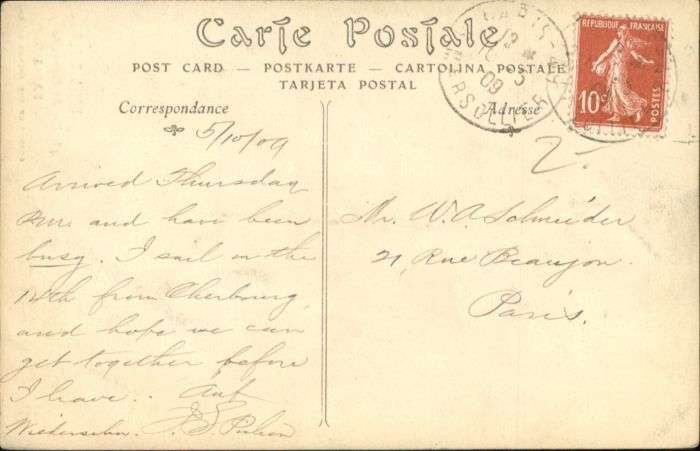 Carte Postale
POST CARD — POSTKARTE — CARTOLINA POSTALE
TARJETA POSTAL
Correspondance
Adresse
REPUBLIQUE FRANÇAISE
10c
POSTES
09
5/10/09
Arrived Thursday
P.M. and have been
busy. I sail on the
14th from Cherbourg
and hope we can
get together before
I leave. Auf
Wiedersehn.
Mr. W. A. Schneider
21, Rue Beaujon.
Paris.